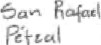 San Rafael
Pétzal